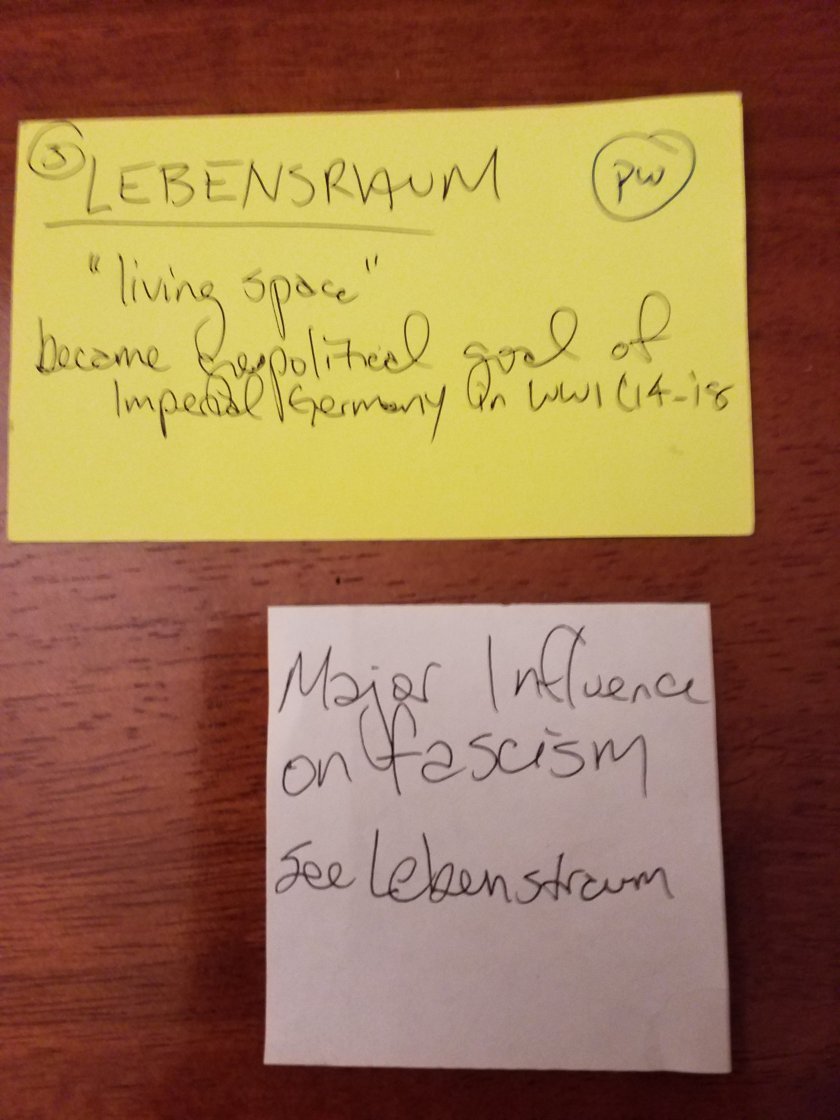 5 LEBENSRAUM PW
"living space"
became geopolitical goal of
Imperial Germany in WW1 (14-18
Major Influence
on fascism
See Lebenstraum